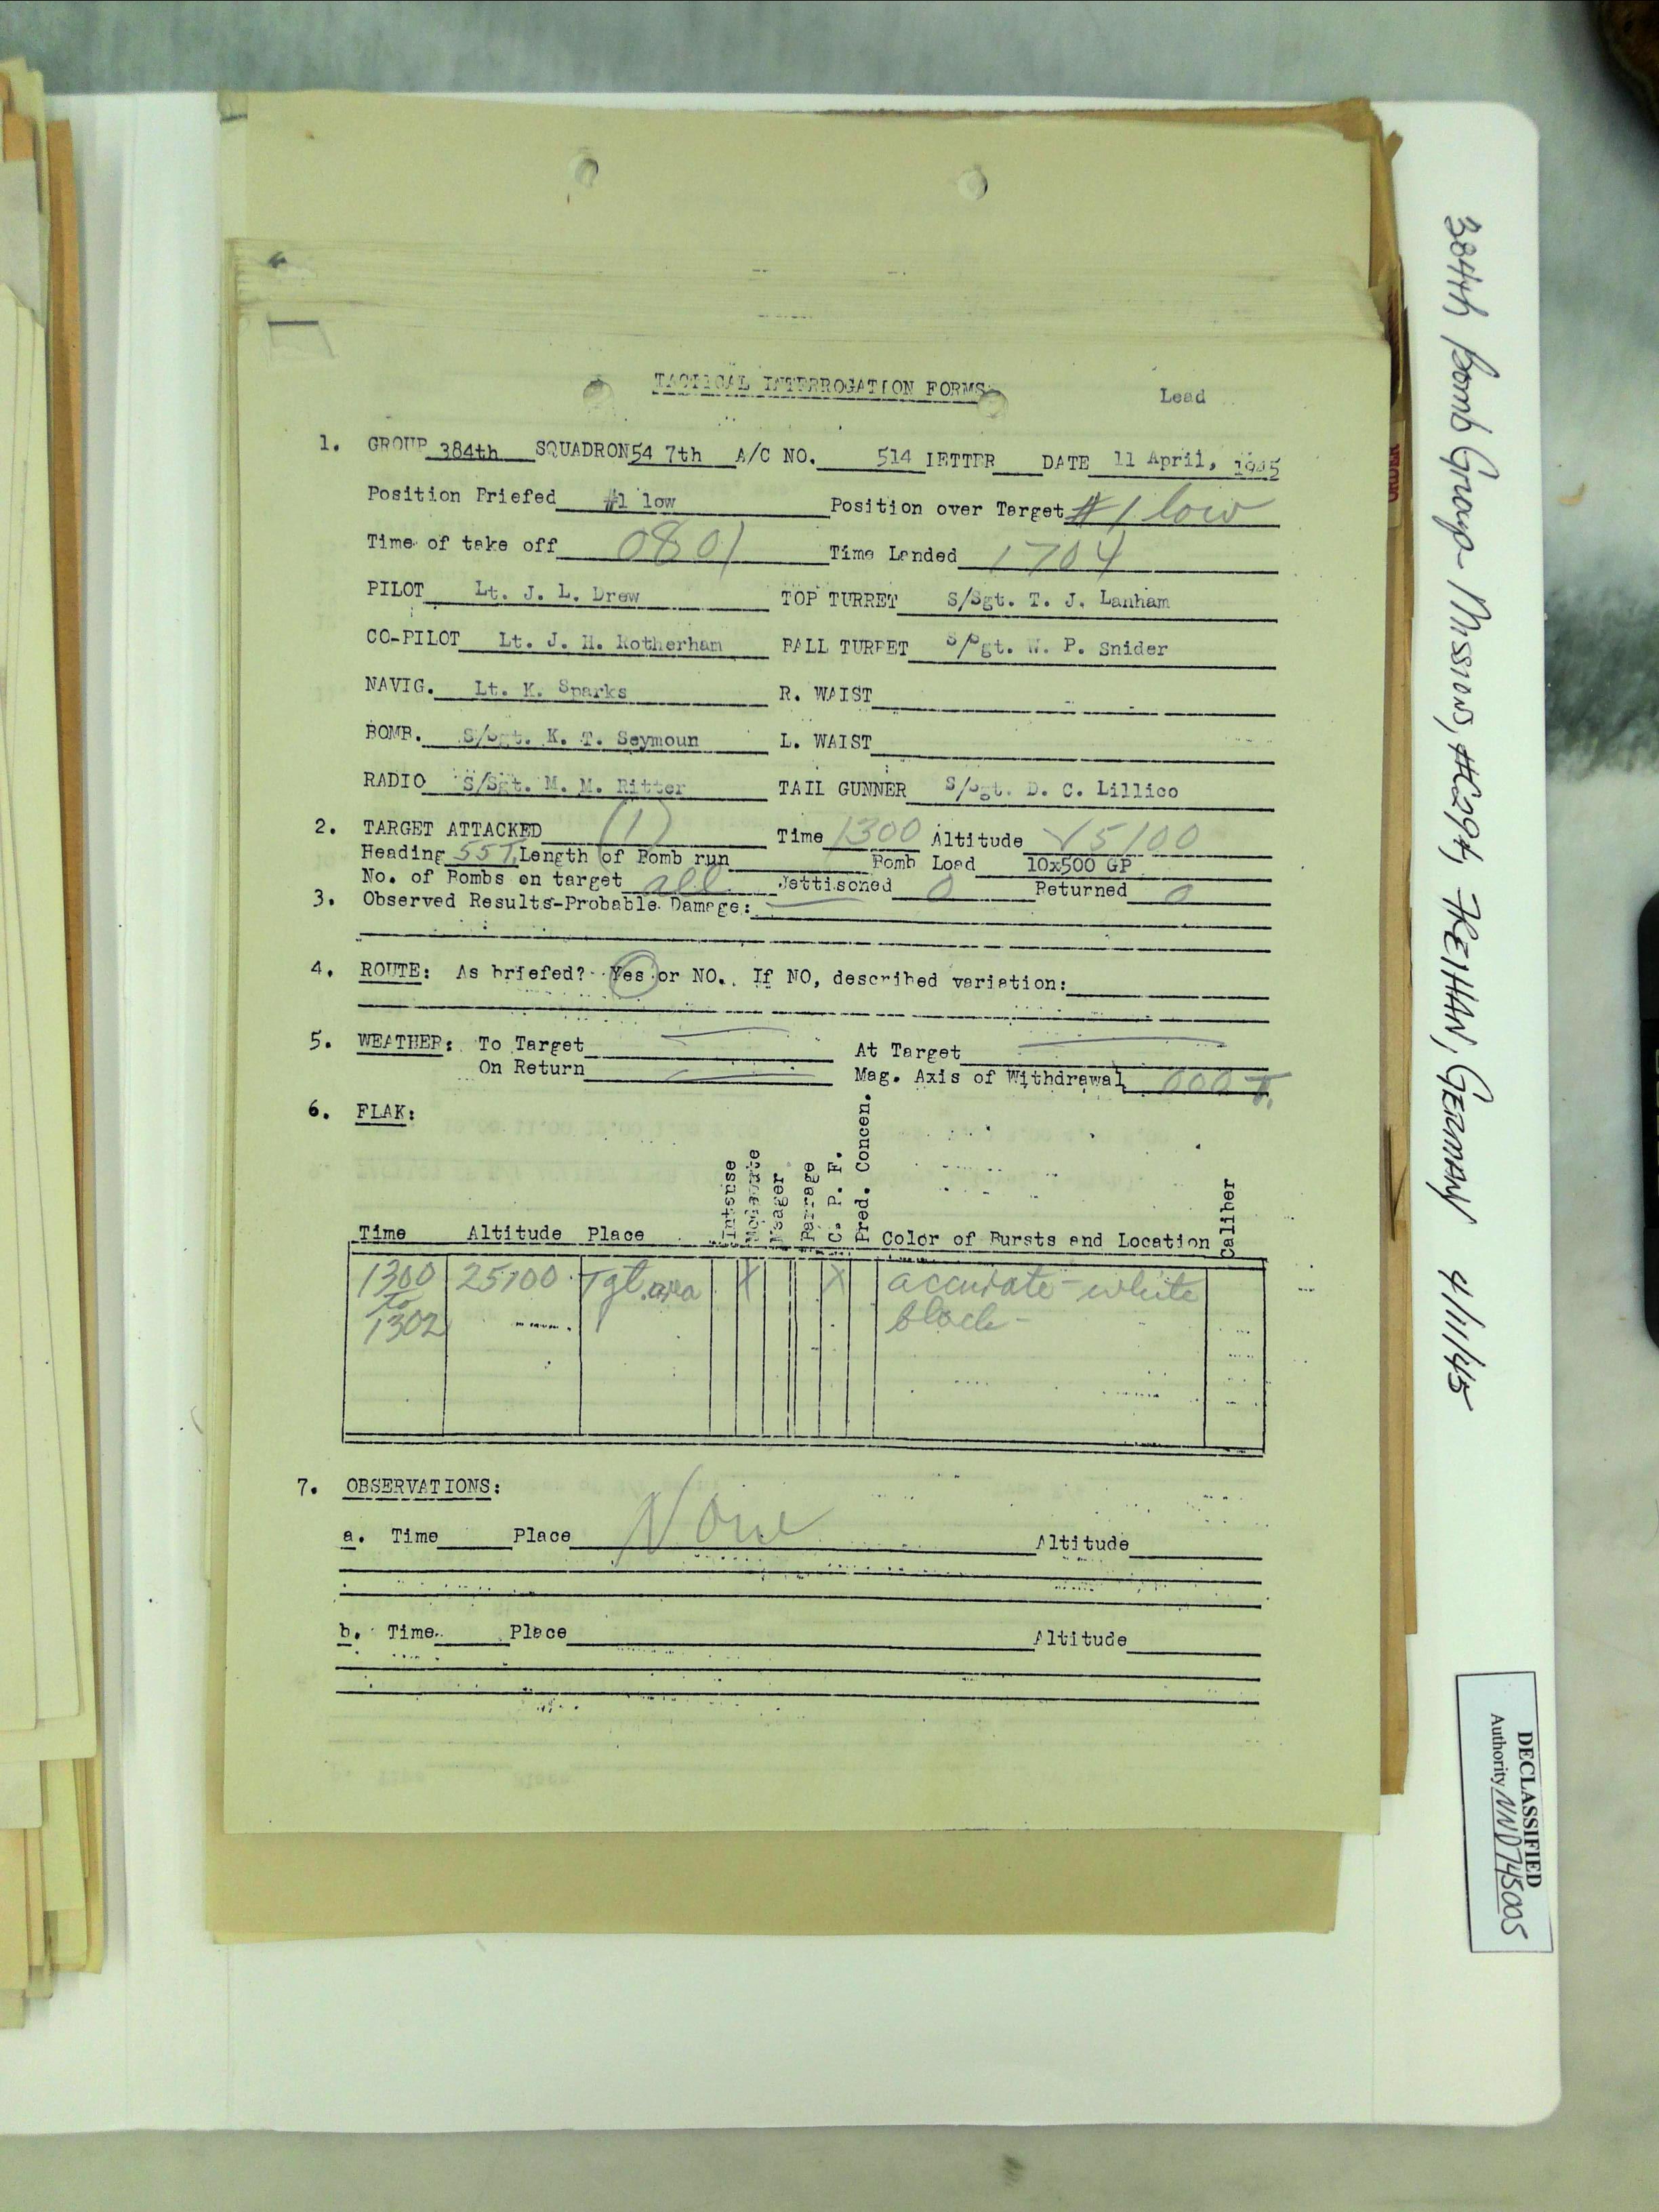 TACTICAL INTERROGATION FORMS
Lead
1. GROUP 384th SQUADRON 54 7th A/C NO. 514 LETTER DATE 11 April, 1945
Position Briefed #1 low Position over Target #1 low
Time of take off 0801 Time Landed 1704
PILOT Lt. J. L. Drew TOP TURRET S/Sgt. T. J. Lanham
CO-PILOT Lt. J. H. Rotherham BALL TURRET S/Sgt. W. P. Snider
NAVIG. Lt. K. Sparks R. WAIST
BOMB. S/Sgt. K. T. Seymoun L. WAIST
RADIO S/Sgt. M. M. Ritter TAIL GUNNER S/Sgt. D. C. Lillico
2. TARGET ATTACKED (1) Time 1300 Altitude 25100
Heading 55 T. Length of Bomb run Bomb Load 10x500 GP
No. of Bombs on target all Jettisoned 0 Returned 0
3. Observed Results-Probable Damage:
4. ROUTE: As briefed? Yes or NO. If NO, described variation:
5. WEATHER: To Target At Target
On Return Mag. Axis of Withdrawal 000 T.
6. FLAK:
Time Altitude Place Intense Moderate Meager Barrage C. P. F. Pred. Concen. Color of Bursts and Location Caliber
1300 25100 Tgt. area X X accurate - white
to
1302 black -
7. OBSERVATIONS:
a. Time Place None Altitude
b. Time Place Altitude
384th Bomb Group - Missions, #294, GERMANY 4/11/45
ORDER
DECLASSIFIED
Authority NND745005